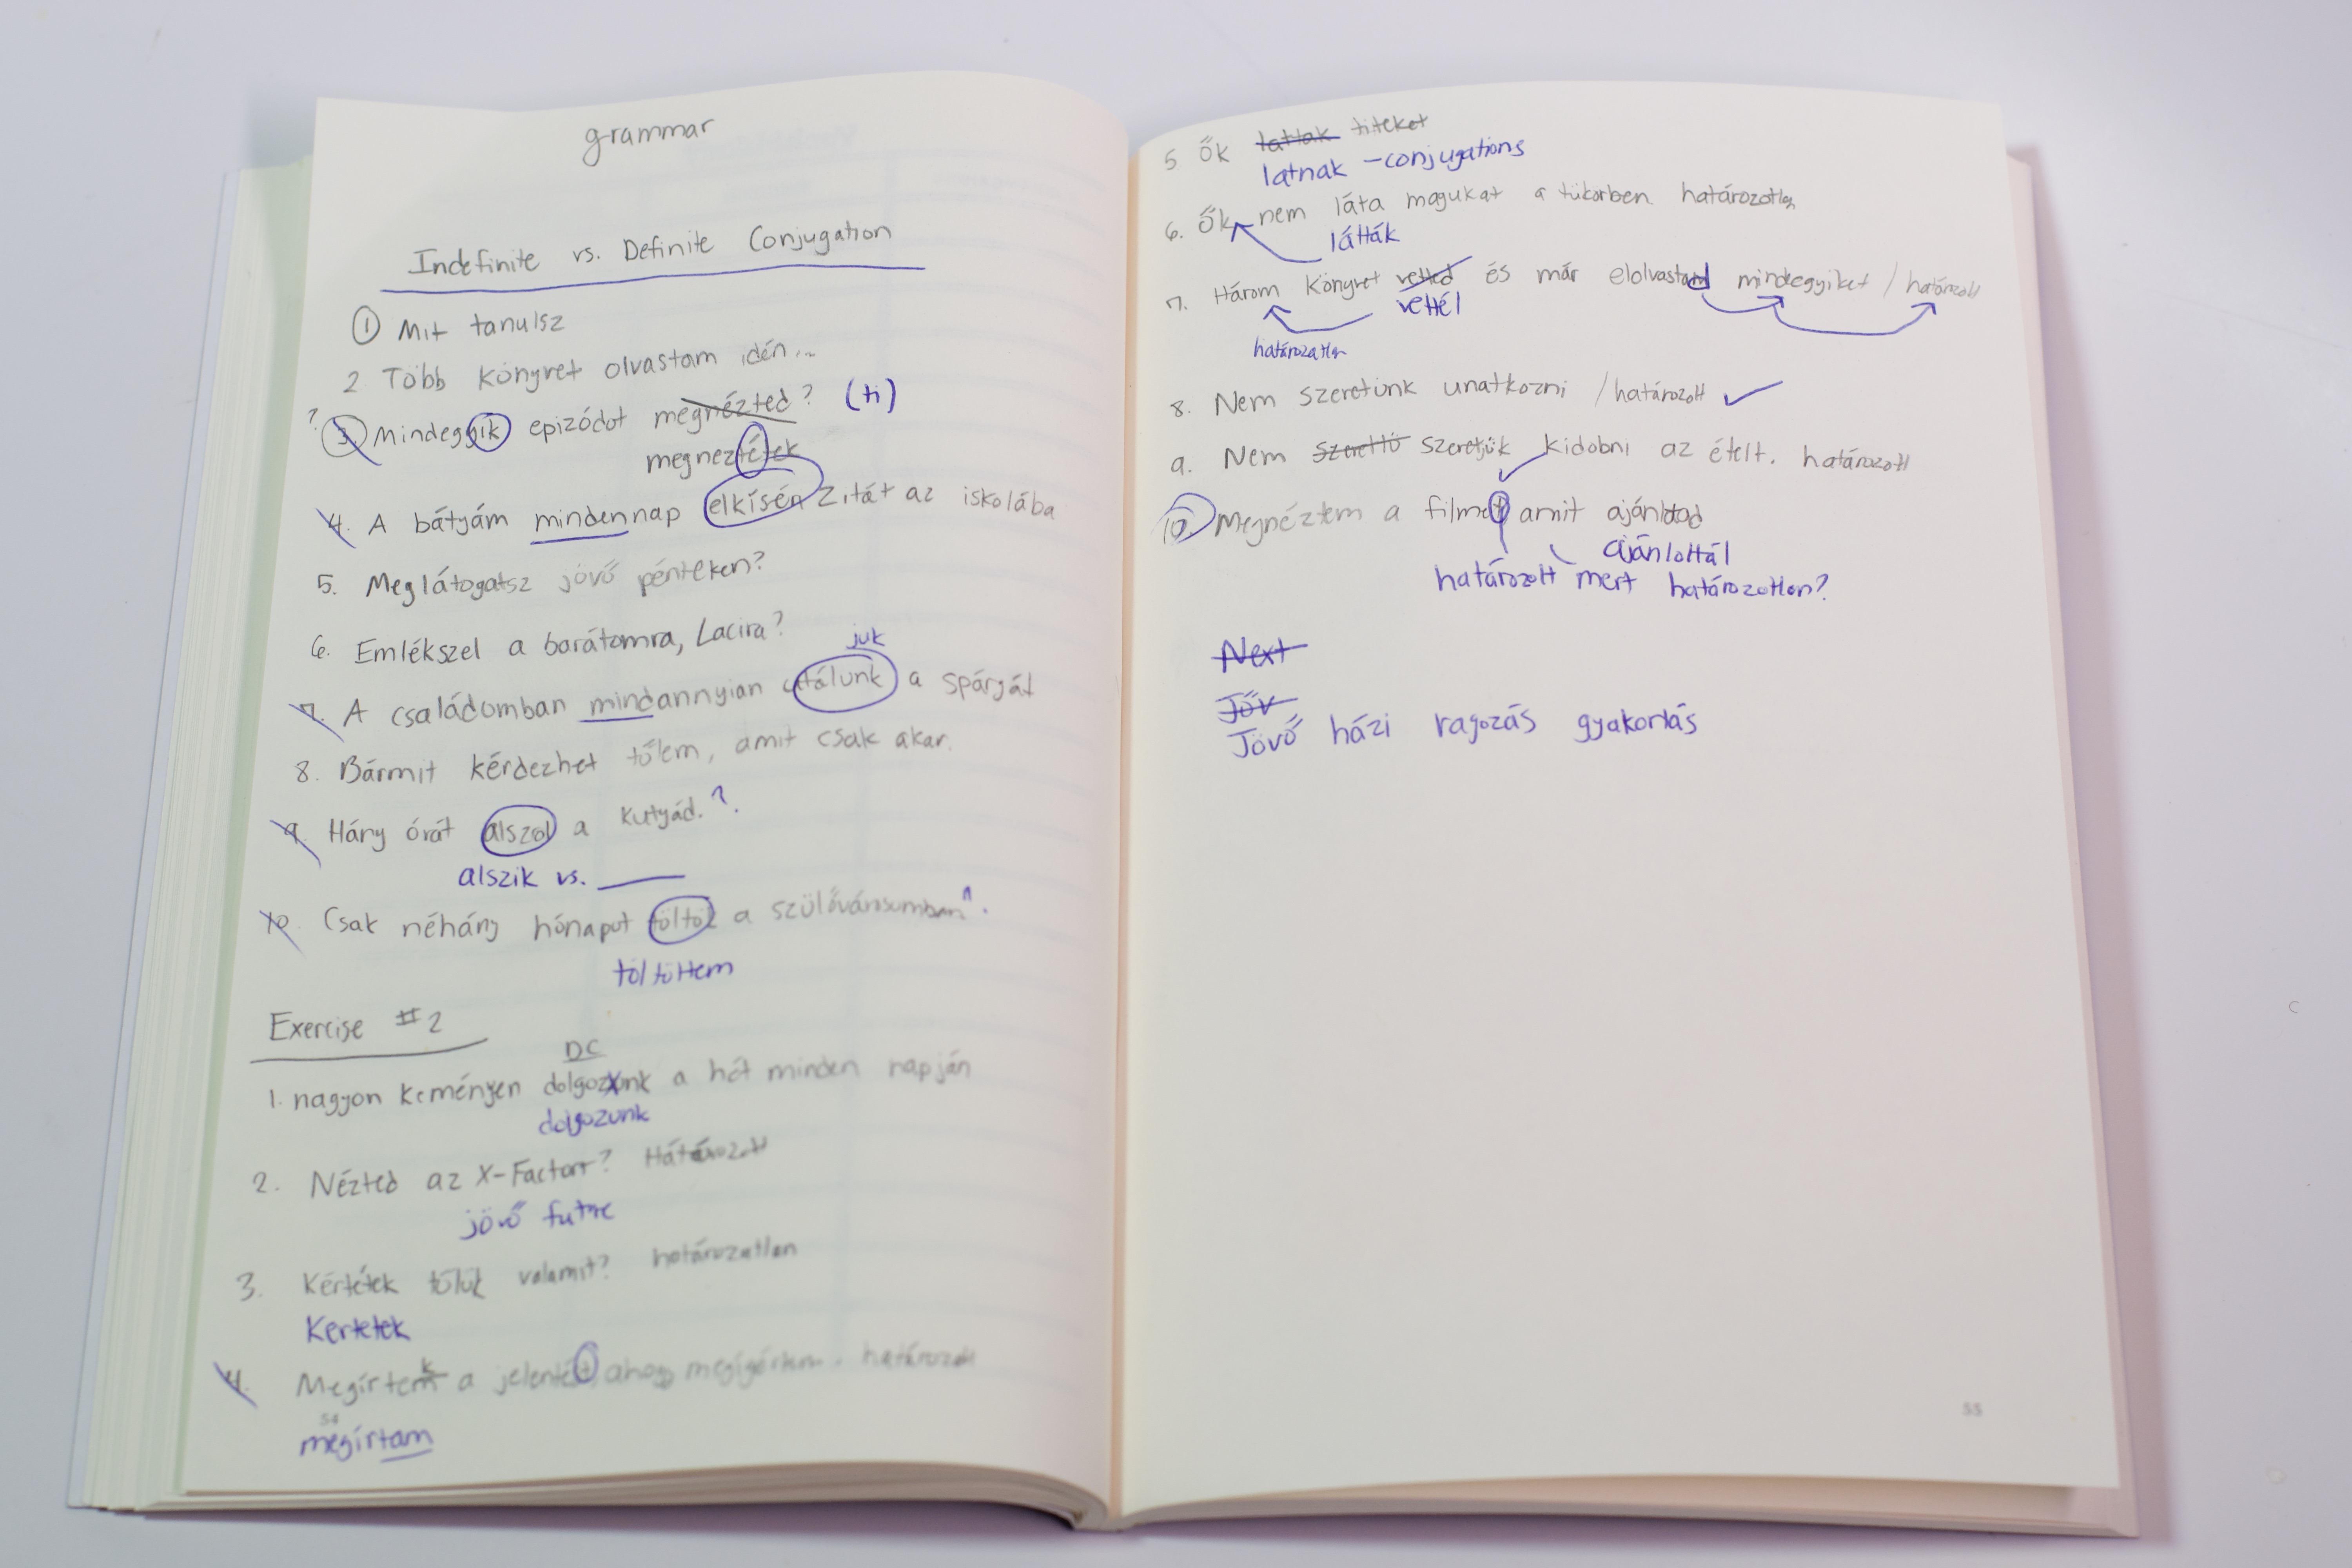 grammar
Indefinite vs. Definite Conjugation
① Mit tanulsz
2 Több könyvet olvastam idén...
? 3. Mindeggyik epizódot megnézted? (ti)
megneztétek
4. A bátyám mindennap elkísén Zitát az iskolába
5. Meglátogatsz jövő pénteken?
6. Emlékszel a barátomra, Lacira?
juk
7. A családomban mindannyian utálunk a spárgát
8. Bármit kérdezhet tőlem, amit csak akar.
9. Hány órát alszol a kutyád.?
alszik vs. ____
10. Csak néhány hónapot töltöl a szülővárosumban n.
töltöttem
Exercise #2
DC
1. nagyon keményen a hét minden napján
dolgozunk
2. Nézted az X-Factort? Határozott
jövő future
3. Kértétek tőlük valamit? határozatlan
Kertetek
k
4. Megírtem a jelentést, ahogy megígértem. határozott
54
megírtam
5 Ők lattak titeket
latnak - conjugations
6. Ők nem láta magukat a tükörben határozotlan
látták
7. Három könyvet vetted és már elolvastad mindegyiket / határozott
vettél
határozatlan
8. Nem szeretünk unatkozni / határozott ✓
9. Nem szerettü szeretjük kidobni az ételt. határozott
10 Megnéztem a filmet amit ajánlotad
ajánlottál
határozott mert határozotlan?
Next
Jőv
Jövő házi ragozás gyakorlás
55